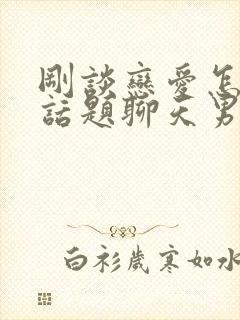 剛談戀愛怎
話題聊天男
白衫歲寒如水